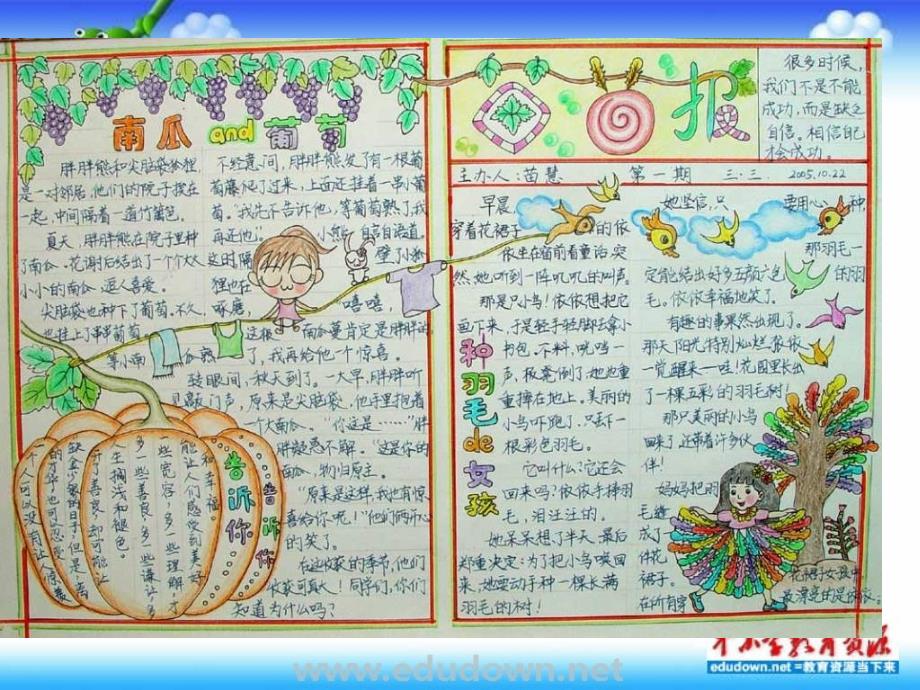 南瓜 and 葡萄
胖胖熊和尖脑袋狐狸
是一对邻居,他们的院子挨在
一起,中间隔着一道竹篱笆。
夏天,胖胖熊在院子里种
了南瓜。花谢后结出了一个个大大
小小的南瓜,逗人喜爱。
尖脑袋也种下了葡萄。不久,
也挂上了串串葡萄
不经意间,胖胖熊发了有一根葡
萄藤伸了过来,上面还挂着一串小葡
萄。“我先不告诉他,等葡萄熟了,我
再还他。”
小熊自言自语道。
这时隔
狸也在
琢磨
嘻嘻,
这根
南瓜蔓肯定是胖胖的
等小南
瓜熟
了,我再给他一个惊喜。
转眼间,秋天到了。一大早,胖胖听
见敲门声,原来是尖脑袋,他手里抱着
一个大南瓜。“你这是……”胖
胖疑惑不解。“这是你的
南瓜,物归原主。
“原来是这样,我也有惊
喜给你呢!”他们俩开心
的笑了。
在这收获的季节,他们
收获可真大!同学们,你们
知道为什么吗?
告诉你
告诉你
报
很多时候,
我们不是不能
成功,而是缺乏
自信。相信自己
才会成功。
主办人:苗慧
第一期
三·三
2005.10.22
种羽毛de女孩
早晨,
穿着花裙子
的依
依坐在窗前看童话,突
然,她听到一阵叽叽的叫声
那是只小鸟!依依想把它
画下来,于是轻手轻脚去拿小
书包,不料,咣当一
声,板凳倒了,她也重
重摔在地上。美丽的
小鸟吓跑了,只丢下一
根彩色羽毛。
它叫什么?它还会
回来吗?依依手捧羽
毛,泪汪汪的。
她呆呆想了半天,最后
郑重决定:为了把小鸟唤回
来,她要动手种一棵长满
羽毛的树!
她坚信,只
要用心种,
那羽毛一
定能结出好多五颜六色
的羽
毛。依依幸福地笑了。
有趣的事果然出现了。
那天,阳光特别灿烂,依依
一觉醒来——哇!花园里长出
了一棵五彩的羽毛树!
那只美丽的小鸟
回来了,还带着许多伙
伴!
妈妈把羽
毛缝
成了一
件花
裙子。
在所有穿
花裙子女孩中,
最漂亮的是依依。
中小学教育资源
edudown.net =教育资源当下来
www.edudown.net